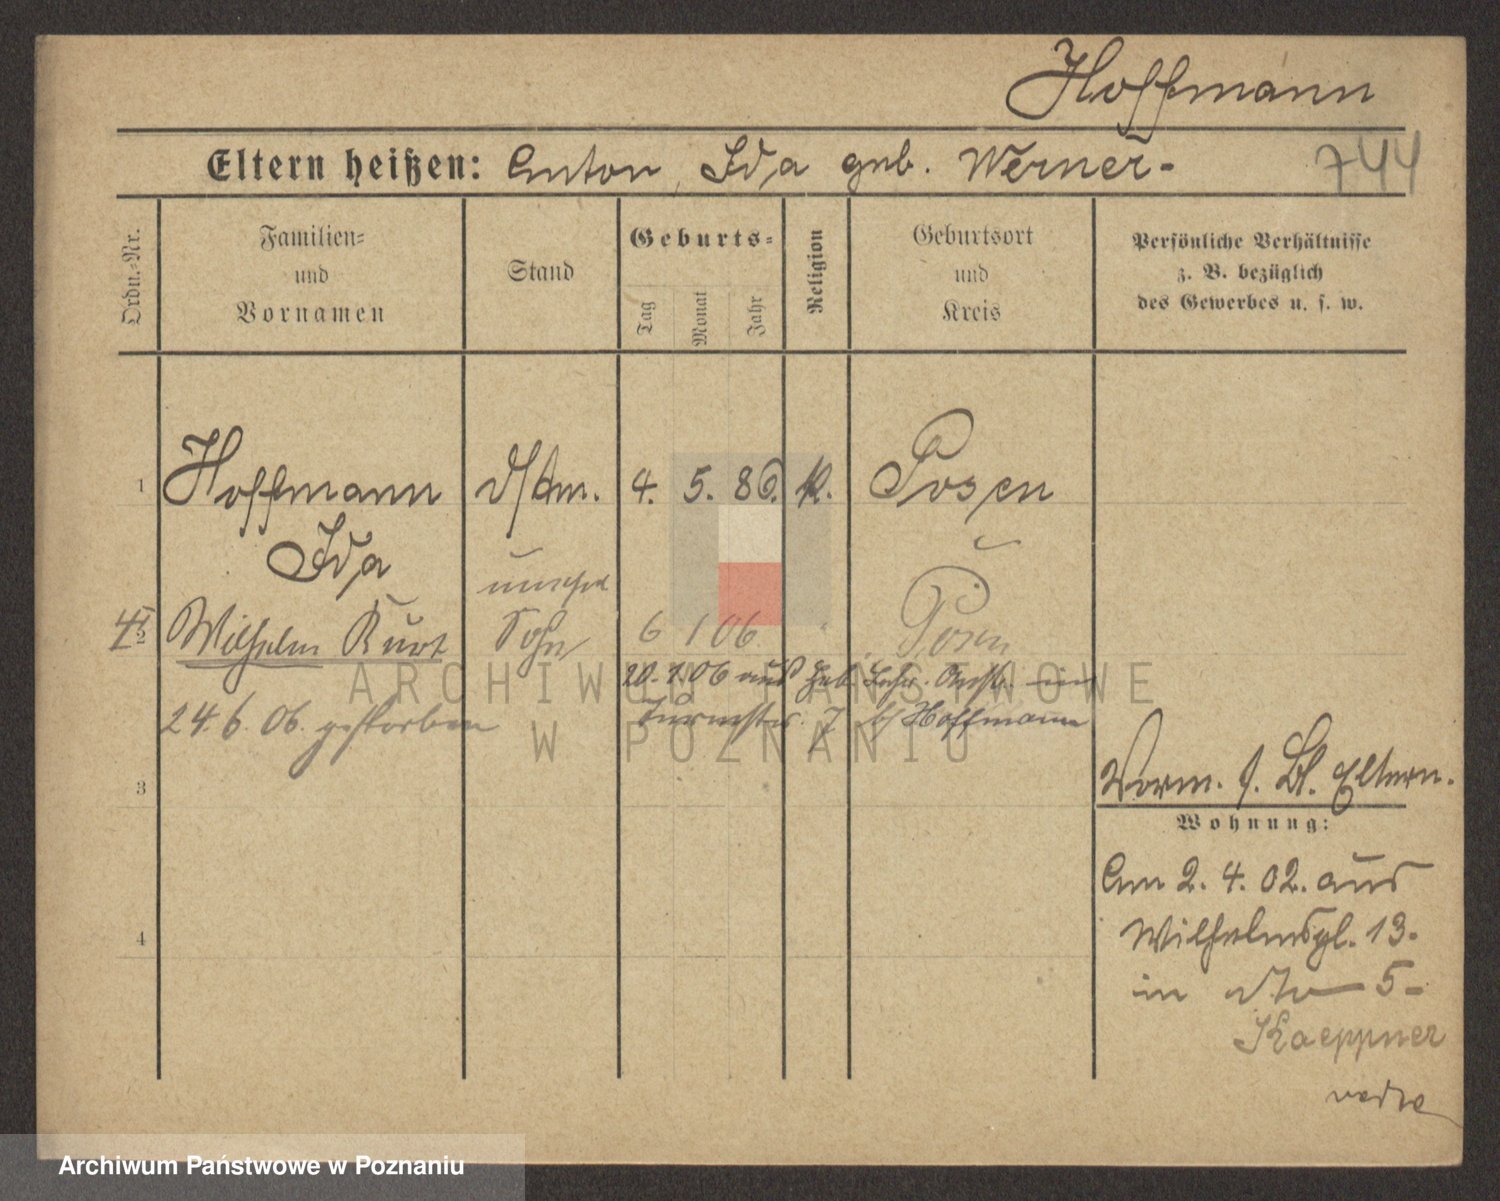 Hoffmann
Eltern heißen: Anton, Ida geb. Werner-
744
Ordn.-Nr.
Familien-
und
Vornamen
Stand
Geburts-
Tag
Monat
Jahr
Religion
Geburtsort
und
Kreis
Persönliche Verhältnisse
z. B. bezüglich
des Gewerbes u. s. w.
1 Hoffmann 4. 5. 86. K. Posen
Ida
unehel
2 Wilhelm Kurt Sohn 6 1 06. Posen
20.1.06 aus Heb. Lehr. Anst. in
24.6.06. gestorben
7 b/ Hoffmann
3
Vorm. s. Bl. Eltern.
Wohnung:
Am 2. 4. 02. aus
Wilhelmspl. 13.
4
in dto 5-
Kaeppner
ARCHIWUM PAŃSTWOWE
W POZNANIU
Archiwum Państwowe w Poznaniu